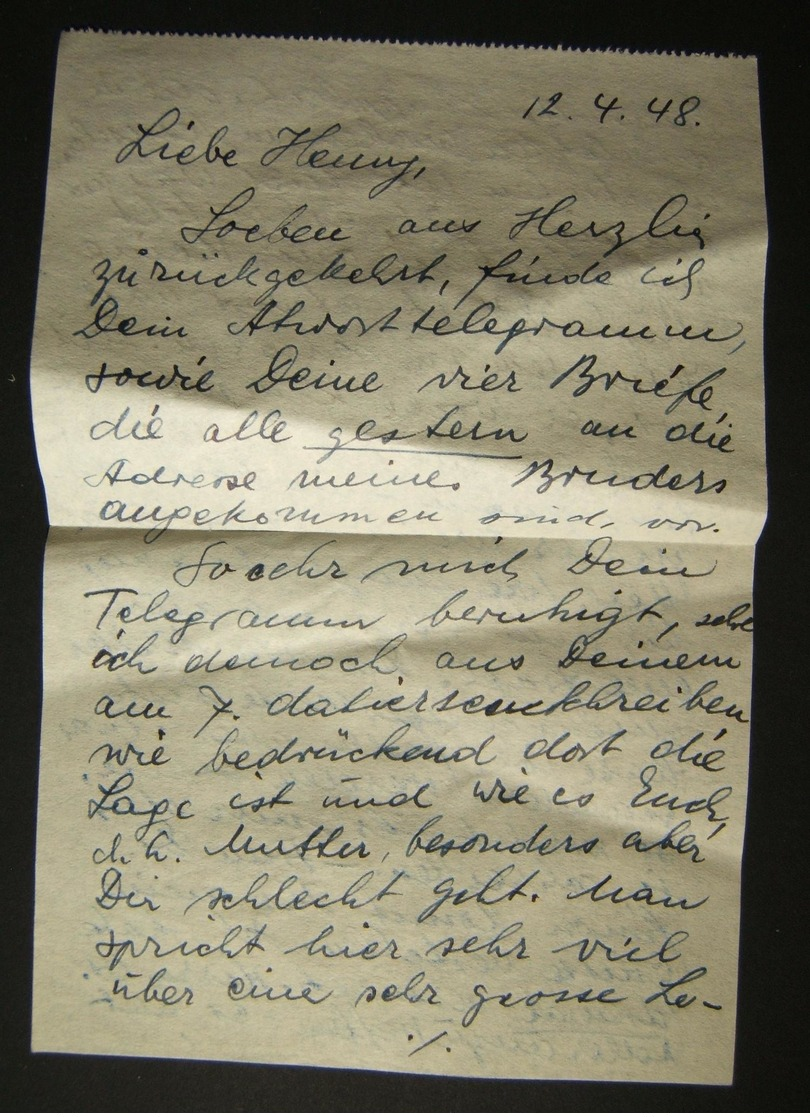 12.4.48.
Liebe Henny,
Soeben aus Herzlia
zurückgekehrt, finde ich
Dein Atwort telegramm,
sowie Deine vier Briefe,
die alle gestern an die
Adresse meines Bruders
angekommen sind, vor.
So sehr mich Dein
Telegramm beruhigt, sehe
ich dennoch aus Deinem
am 7. datierten schreiben
wie bedrückend dort die
Lage ist und wie es Euch,
d.h. Mutter, besonders aber
Dir schlecht geht. Man
spricht hier sehr viel
über eine sehr grosse Lo-
./.